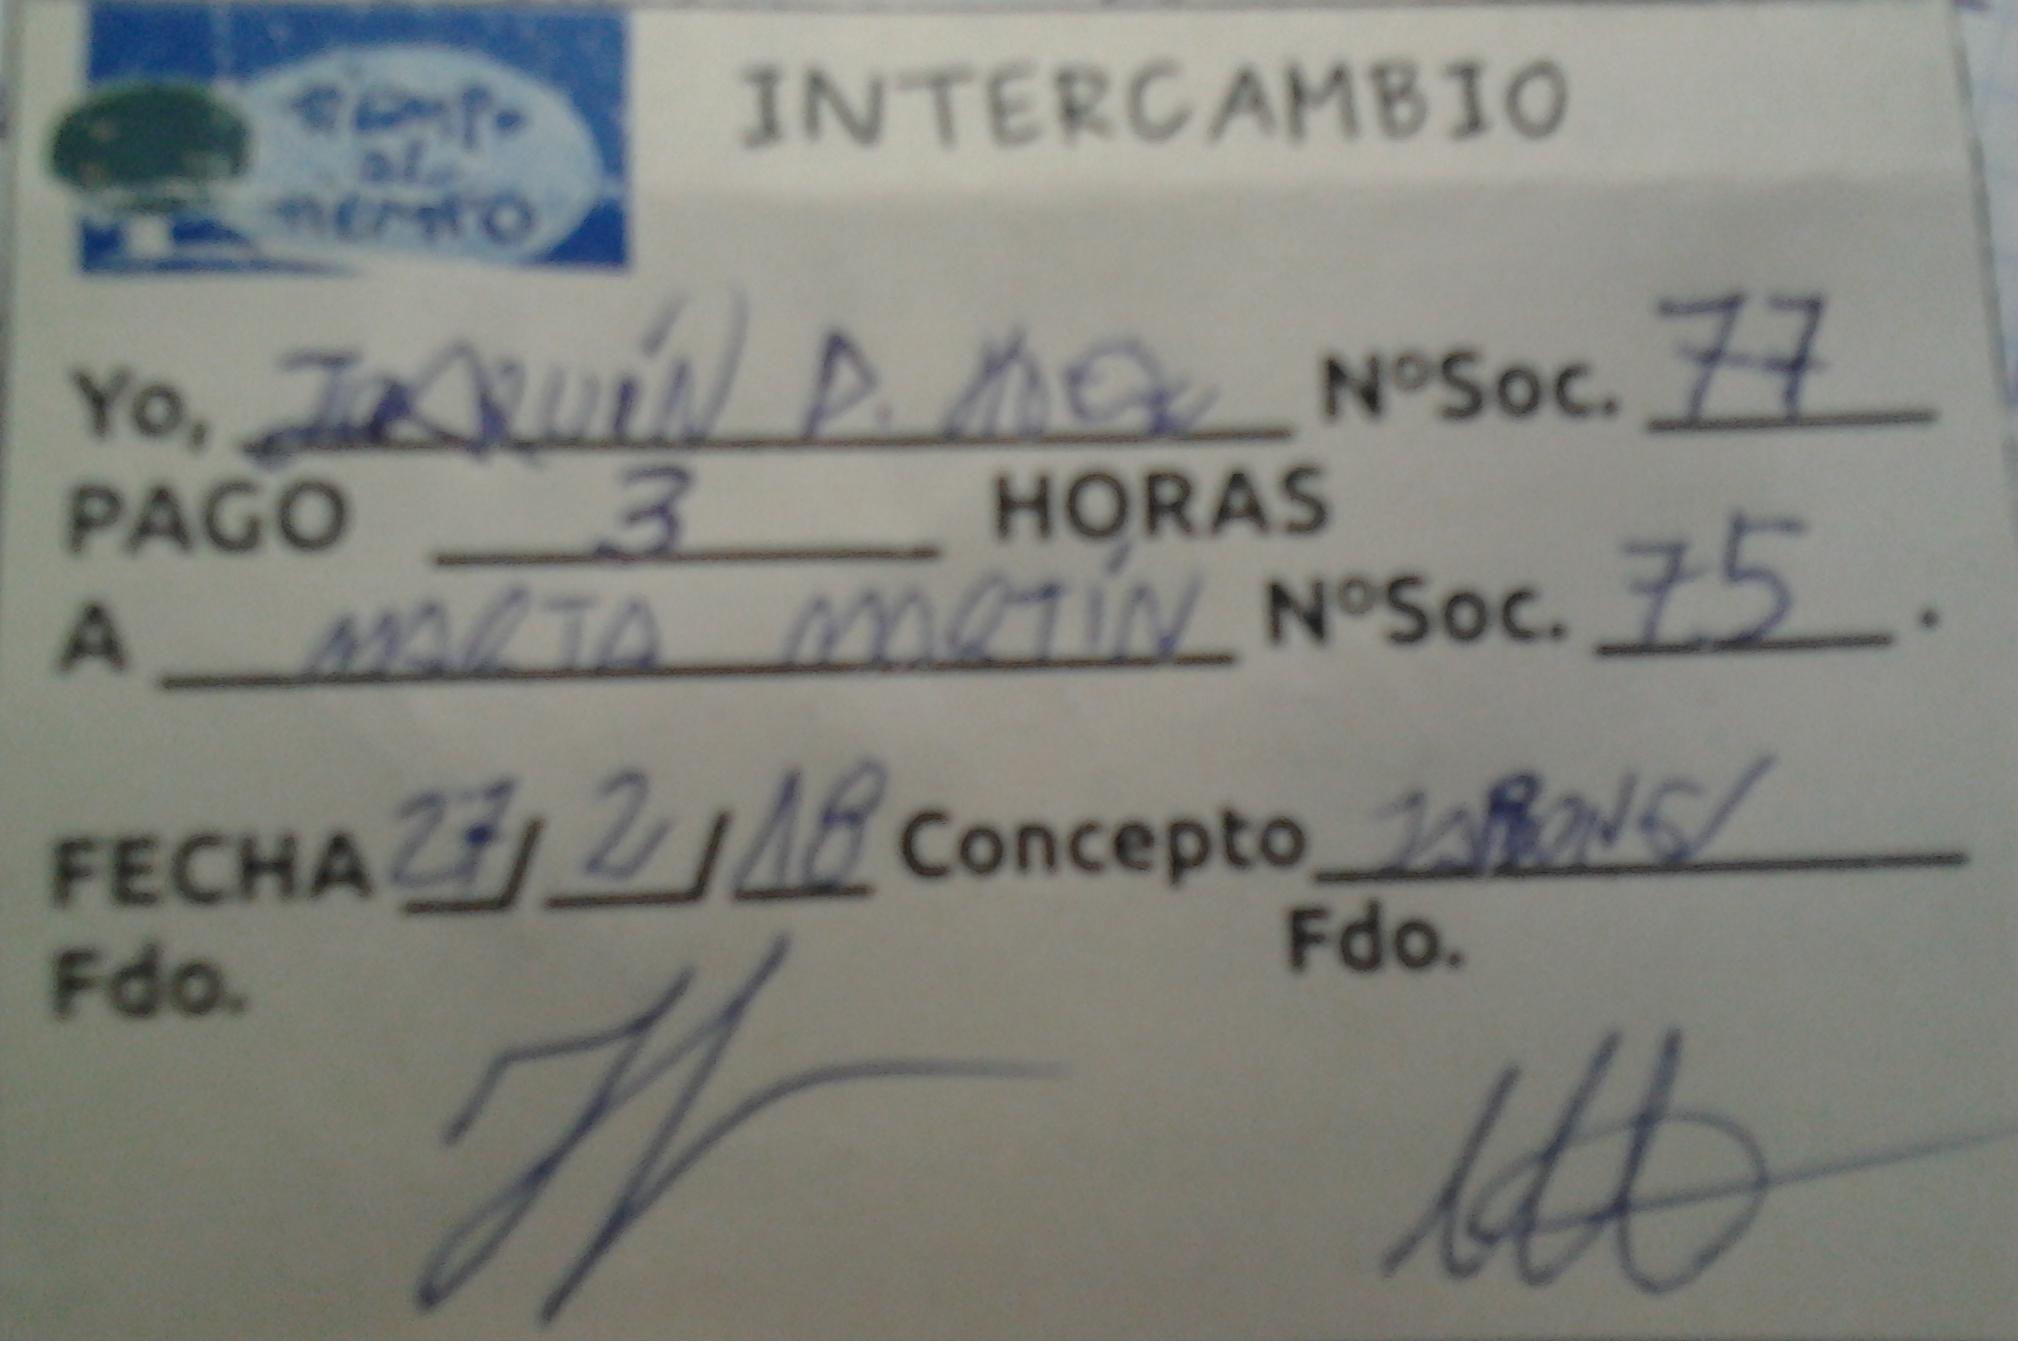 tiempo
al
INTERCAMBIO
Yo, JOAQUÍN P. NºSoc. 77
PAGO 3 HORAS
A MARTA MARTÍN NºSoc. 75.
FECHA 27/2/18 Concepto
Fdo. Fdo.